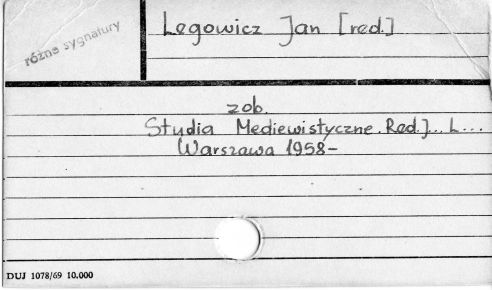 Legowicz Jan [red.]
różne sygnatury
zob.
Studia Mediewistyczne. Red. J... L...
Warszawa 1958-
DUJ 1078/69 10.000